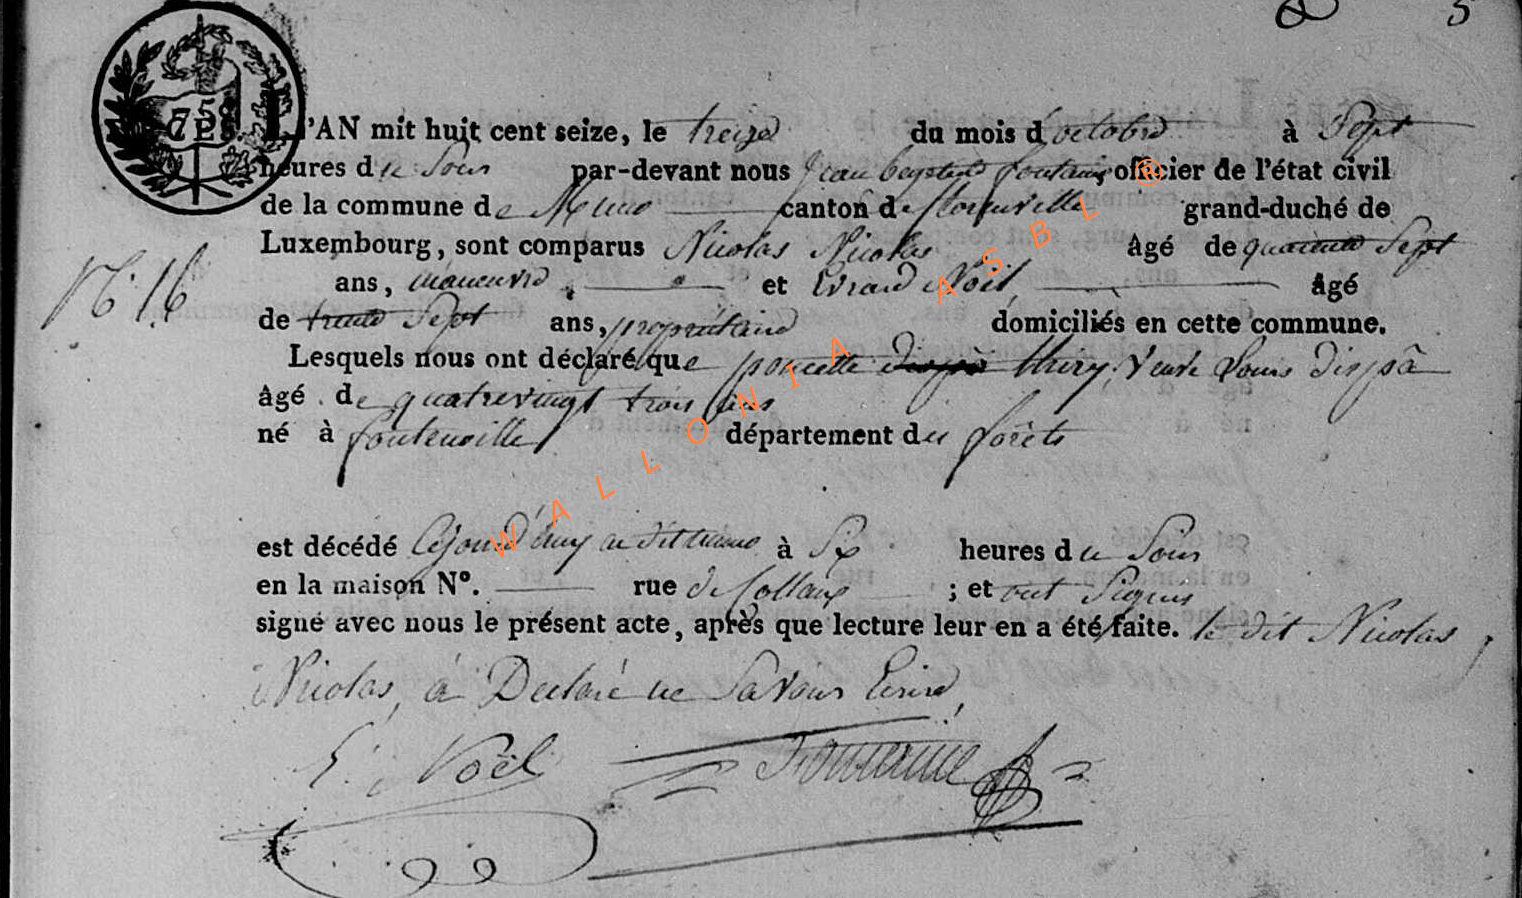 5
L'AN mil huit cent seize, le treize du mois d'octobre à Sept
heures du Soir par-devant nous Jean baptiste fontaine, officier de l'état civil
de la commune de Muno canton de florenville grand-duché de
Luxembourg, sont comparus Nicolas Nicolas âgé de quarante Sept
N° 16
ans, maneuvre, et Evrard Noël âgé
de trente Sept ans, propriétaire domiciliés en cette commune.
Lesquels nous ont déclaré que poncette thiry, veuve Louis
âgé de quatrevingt trois ans
né à fontenoille département des forêts
est décédé cejourd'huy au dit muno à Six heures du Soir
en la maison N°. rue de ; et ont Signés
signé avec nous le présent acte, après que lecture leur en a été faite. le dit Nicolas
Nicolas, à Declaré ne Savoir Ecrire,
E. Noël Fontaine
WALLONIA ASBL ®